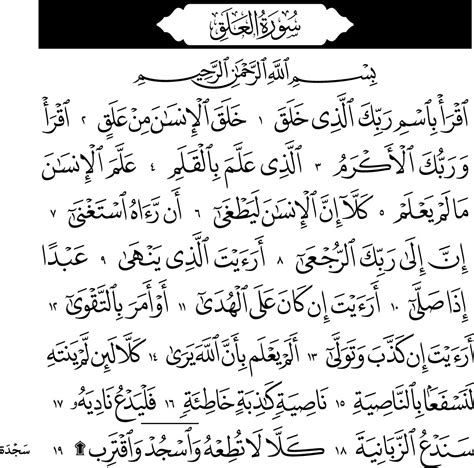 سُورَةُ الْعَلَقِ
بِسْمِ اللَّهِ الرَّحْمَٰنِ الرَّحِيمِ
اقْرَأْ بِاسْمِ رَبِّكَ الَّذِي خَلَقَ ١ خَلَقَ الْإِنسَانَ مِنْ عَلَقٍ ٢ اقْرَأْ
وَرَبُّكَ الْأَكْرَمُ ٣ الَّذِي عَلَّمَ بِالْقَلَمِ ٤ عَلَّمَ الْإِنسَانَ
مَا لَمْ يَعْلَمْ ٥ كَلَّا إِنَّ الْإِنسَانَ لَيَطْغَىٰ ٦ أَن رَّءَاهُ اسْتَغْنَىٰ ٧
إِنَّ إِلَىٰ رَبِّكَ الرُّجْعَىٰ ٨ أَرَءَيْتَ الَّذِي يَنْهَىٰ ٩ عَبْدًا
إِذَا صَلَّىٰ ١٠ أَرَءَيْتَ إِن كَانَ عَلَى الْهُدَىٰ ١١ أَوْ أَمَرَ بِالتَّقْوَىٰ ١٢
أَرَءَيْتَ إِن كَذَّبَ وَتَوَلَّىٰ ١٣ أَلَمْ يَعْلَم بِأَنَّ اللَّهَ يَرَىٰ ١٤ كَلَّا لَئِن لَّمْ يَنتَهِ
لَنَسْفَعًا بِالنَّاصِيَةِ ١٥ نَاصِيَةٍ كَاذِبَةٍ خَاطِئَةٍ ١٦ فَلْيَدْعُ نَادِيَهُ ١٧
سَنَدْعُ الزَّبَانِيَةَ ١٨ كَلَّا لَا تُطِعْهُ وَاسْجُدْ وَاقْتَرِب ۩ ١٩ سَجْدَة